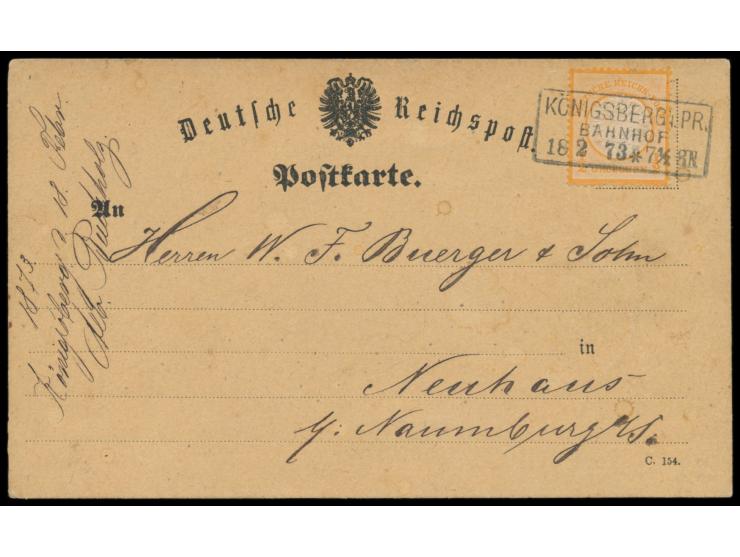 Deutsche Reichspost.
Postkarte.
KÖNIGSBERG I. PR.
BAHNHOF
18 2 73 * 7¼
An
Herren W. F. Buerger & Sohn
in
Neuhaus
Naumburg a/S.
C. 154.
1873
Königsberg 18. Febr.